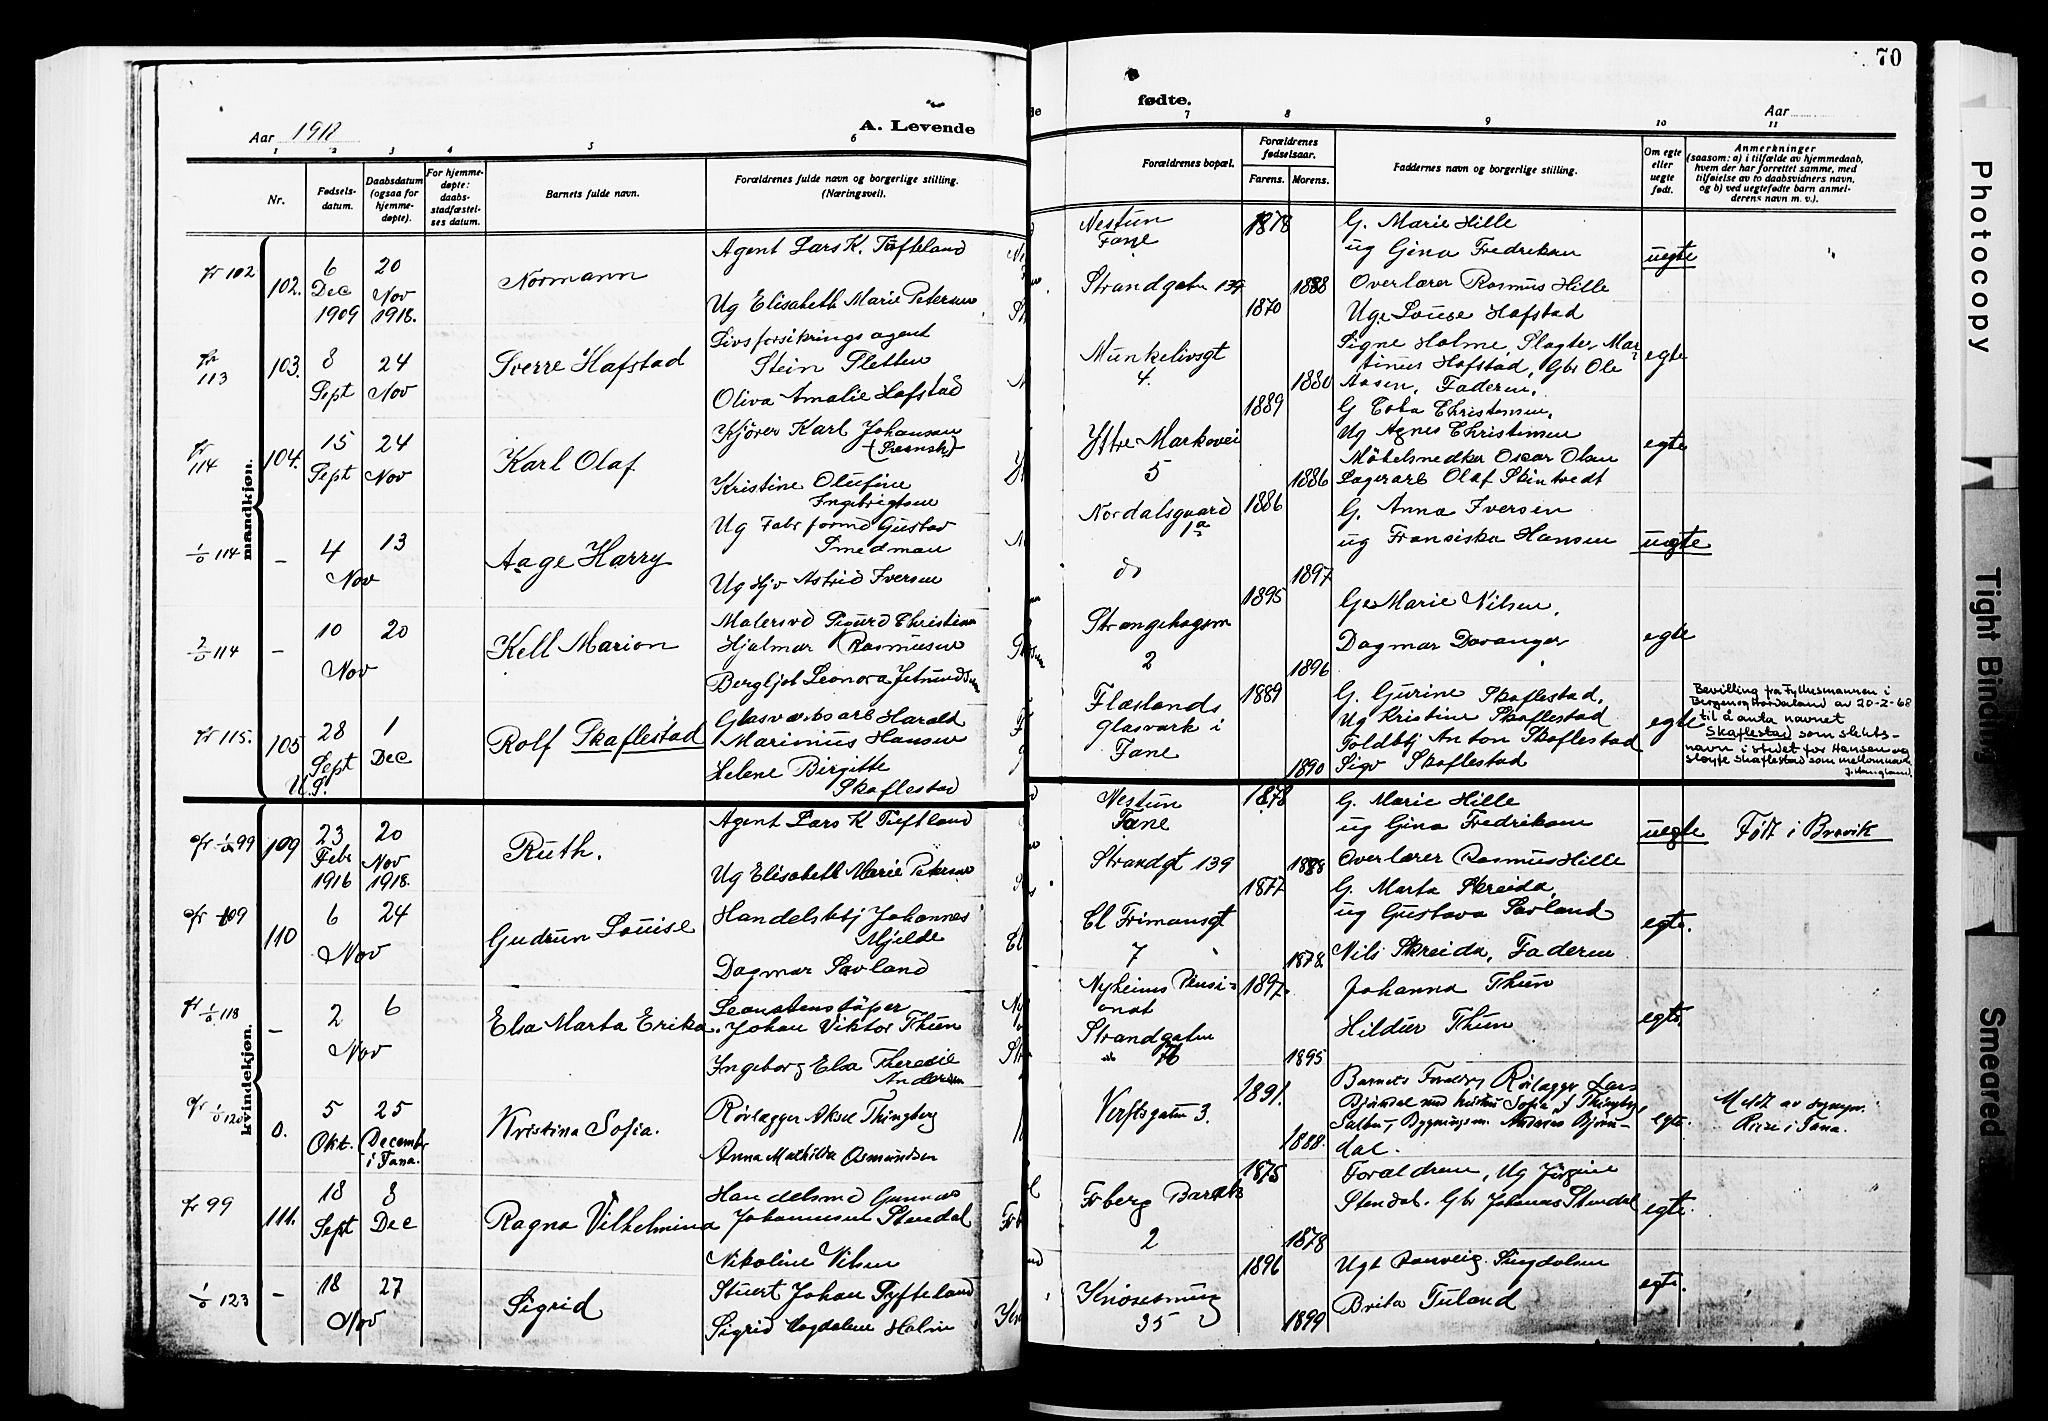 70
Photocopy
Tight Binding
Smeared
Aar 1918
A. Levende
fødte.
Aar
1 2 3 4 5 6
7 8 9 10 11
Nr.
Fødsels-
datum.
Daabsdatum
(ogsaa for
hjemme-
døpte).
For hjemme-
døpte:
daabs-
stadfæstel-
ses datum.
Barnets fulde navn.
Forældrenes fulde navn og borgerlige stilling.
(Næringsvei).
Forældrenes bopæl.
Forældrenes
fødselsaar.
Farens. Morens.
Faddernes navn og borgerlige stilling.
Om egte
eller
uegte
født.
Anmerkninger
(saasom: a) i tilfælde av hjemmedaab,
hvem der har forrettet samme, med
tilføielse av to daabsvidners navn,
og b) ved uegtefødte barn anmel-
derens navn m. v.).
mandkjøn.
fr 102
102.
6
Dec
1909
20
Nov
1918.
Normann
Agent Lars K. Tufteland
Ug Elisabeth Marie Petersen
Nestun
Fane
Strandgaten 139
1878
1888
G. Marie Hille
ug Gina Fredriksen
Overlærer Rasmus Hille
uegte
fr
113
103.
8
Sept
24
Nov
Sverre Hafstad
Livsforsikringsagent
Stein Sletten
Oliva Amalie Hafstad
Munkelivsgt
4.
1870
1880
Uge Louise Hafstad
Signe Holme, Slagter Mar-
tinus Hafstad, Gbr Ole
Aasen, Faderen.
egte
fr
114
104.
15
Sept
24
Nov
Karl Olaf
Kjører Karl Johansen
(Svensk)
Kristine Olufine
Ingebrigtsen
Ytre Markevei
5
1889
1886
G Tota Christensen,
Ug Agnes Christensen
Møbelsnedker Oscar Olsen
Lagerarb Olaf Skintvedt
egte
1/0 114
-
4
Nov
13
Aage Harry
Ug Fabr formd Gustav
Smedman
Ug Hjv Astrid Iversen
Nordalsgaard
1a
do
1886
1897
G. Anna Iversen
ug Fransiska Hansen
uegte
2/0 114
-
10
Nov
20
Kell Marion
Malersvd Sigurd Christian
Hjalmar Rasmussen
Bergljot Leonora Jetmundsen
Strangehagen
2
1895
1896
Ge Marie Nilsen,
Dagmar Davanger
egte
fr 115.
105
U.S.
28
Sept
1
Dec
Rolf Skaflestad
Glasværksarb Harald
Marinius Hansen
Helene Birgitte
Skaflestad
Fleslands
glasverk i
Fane
1889
1890
G. Gurine Skaflestad,
Ug Kristine Skaflestad
Toldbtj Anton Skaflestad
Sigv Skaflestad
egte
Bevilling fra Fylkesmannen i
Bergen og Hordaland av 20-2-68
til å anta navnet
Skaflestad som slekts-
navn i stedet for Hansen og
sløyfe Skaflestad som mellomnavn
kvindekjøn.
fr 1/0 99
109
23
Febr
1916
20
Nov
1918.
Ruth.
Agent Lars K Tufteland
Ug Elisabeth Marie Petersen
Nestun
Fane
Strandgt 139
1878
1888
G. Marie Hille
ug Gina Fredriksen
Overlærer Rasmus Hille
uegte
Født i Brevik
fr 109
110
6
Nov
24
Gudrun Louise
Handelsbtj Johannes
Mjelde
Dagmar Savland
Cl Frimansgt
7
1877
1878.
G. Marta Skreida,
ug Gustava Savland
Nils Skreida, Faderen
egte.
fr 1/0 118
-
2
Nov
6
Elsa Marta Erika.
Johan Viktor Thun
Ingeborg Elsa Theresie
Andersen
Nyheims Pensi-
onat
Strandgaten
1897.
1895
Johanna Thun
Hildur Thun
egte
fr 1/0 120
0.
5
Okt.
25
December
i Tana.
Kristina Sofia.
Rørlægger Aksel Thingberg
Anna Mathilda Osmundsen
Verftsgaten 3.
1891.
1888.
Barnets Forældre, Rørlægger Lars
Bjørkdal med hustru Sofia, J Thingberg,
Bygningssn. Anders Bjørn-
dal.
egte.
Meldt av sognepr.
Riise i Tana.
fr 99
111.
18
Sept
8
Dec
Ragna Vilhelmina
Handelsmd Gunnar
Johannessen Stendal
Nikoline Nilsen
Frberg Barak
2
1875
1878
Forældrene, Ug Jørgine
Stendal. Gbr Johannes Stendal
egte.
1/0 123
-
18
Nov
27
Sigrid
Stuert Johan Tyfteland
Sigrid Magdalene Holm
Knøsesmug
35
1896
1899
Ugt Ranveig Singdalsen
Brita Tuland
egte.